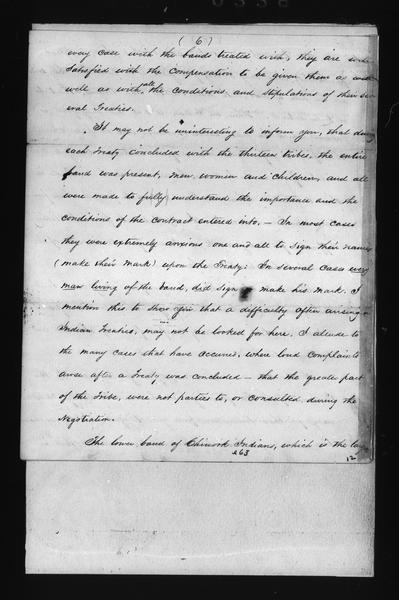 ( 6 )
every case with the bands treated with, they are
satisfied with the Compensation to be given them as
well as with all the conditions and stipulations of their
eral Treaties.
It may not be uninteresting to inform you, that
each Treaty concluded with the thirteen tribes, the entire
band was present, men, women and children, and all
were made to fully understand the importance and the
conditions of the contract entered into, — In most cases
they were extremely anxious one and all to sign their names
(make their mark) upon the Treaty: In several cases every
man living of the band, did sign make his mark. I
mention this to show you that a difficulty often arising
Indian Treaties, may not be looked for here. I allude to
the many cases that have occured, where loud complaints
arose after a Treaty was concluded — that the greater part
of the tribe, were not parties to, or consulted during the
Negotiation.
The lower band of Chinook Indians, which is the
263
12